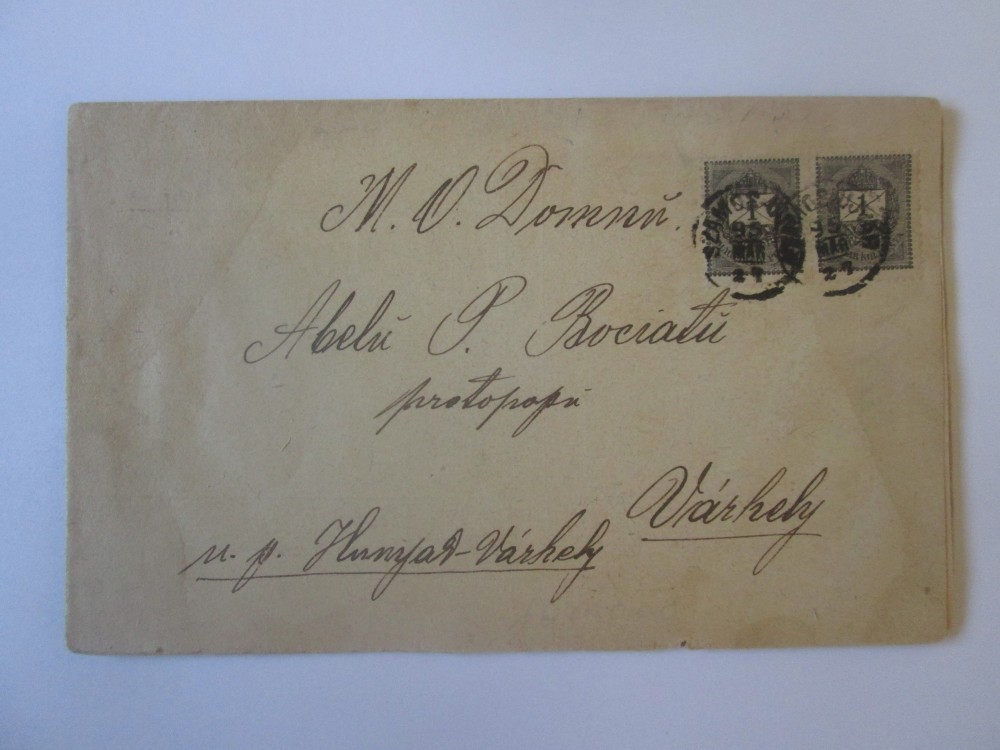 M. O. Domnŭ.
Abelŭ P. Bociatŭ
protopopŭ
Várhely
u. p. Hunyad-Várhely
1
1
95
MAR
27
MAR
27